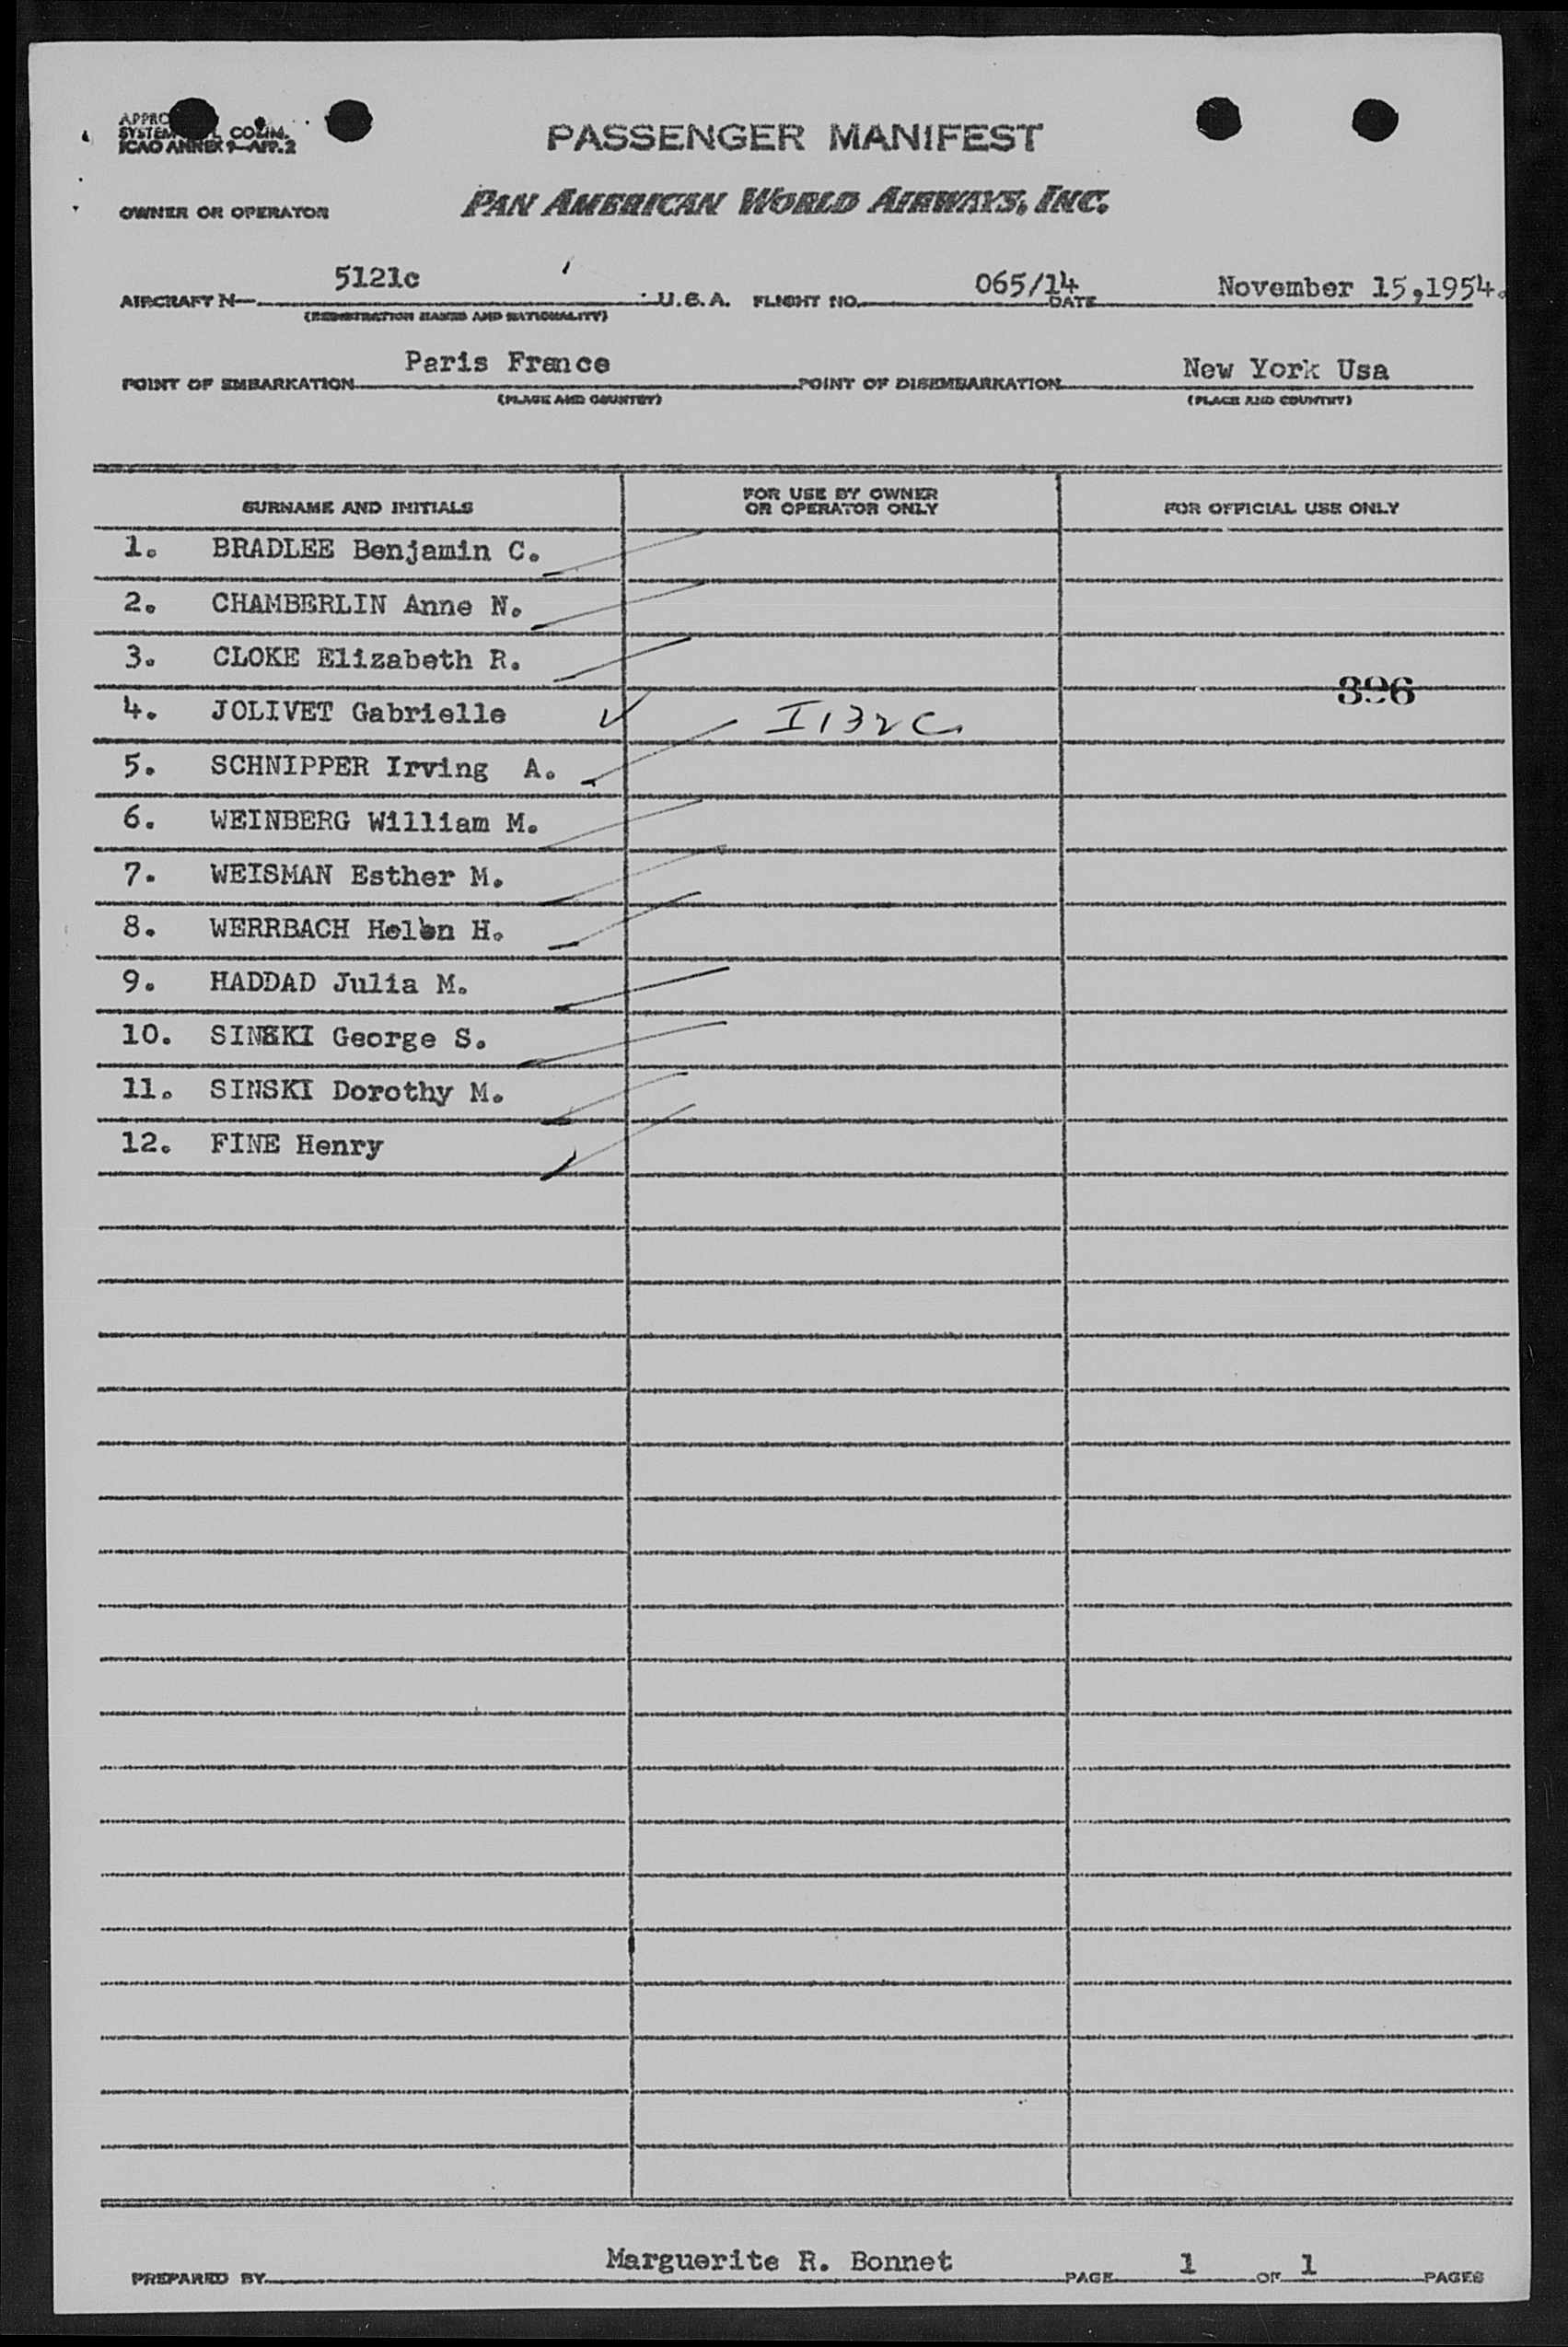 PASSENGER MANIFEST
SYSTEM COMM.
ICAO ANNEX 9-APP.2
OWNER OR OPERATOR PAN AMERICAN WORLD AIRWAYS, INC.
AIRCRAFT N- 5121c U.S.A. FLIGHT NO. 065/14 DATE November 15,1954.
(REGISTRATION MARKS AND NATIONALITY)
POINT OF EMBARKATION Paris France POINT OF DISEMBARKATION New York Usa
(PLACE AND COUNTRY) (PLACE AND COUNTRY)
SURNAME AND INITIALS FOR USE BY OWNER OR OPERATOR ONLY FOR OFFICIAL USE ONLY
1. BRADLEE Benjamin C.
2. CHAMBERLIN Anne N.
3. CLOKE Elizabeth R.
396
4. JOLIVET Gabrielle ✓ I132C
5. SCHNIPPER Irving A.
6. WEINBERG William M.
7. WEISMAN Esther M.
8. WERRBACH Helen H.
9. HADDAD Julia M.
10. SINSKI George S.
11. SINSKI Dorothy M.
12. FINE Henry
PREPARED BY Marguerite R. Bonnet PAGE 1 OF 1 PAGES